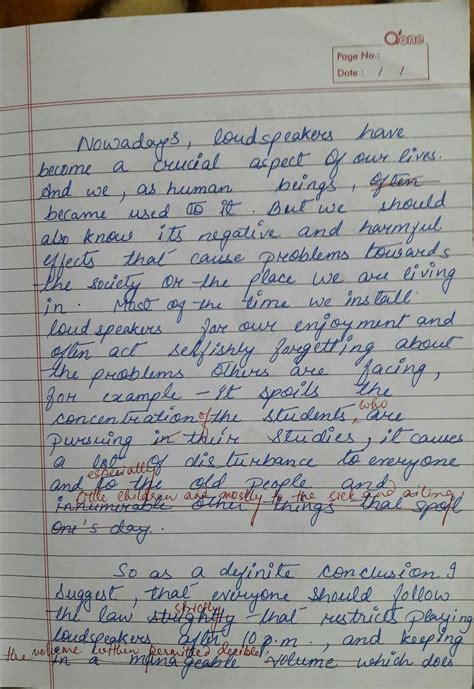 A'one
Page No.:
Date : / /
Nowadays, loudspeakers have
become a crucial aspect of our lives.
And we, as human beings, often
became used to it. But we should
also know its negative and harmful
effects that cause problems towards
the society or the place we are living
in. Most of the time we install
loudspeakers for our enjoyment and
often act selfishly forgetting about
the problems others are facing,
for example - It spoils the
concentration of the students, who are
pursuing in their studies, it causes
a lot of disturbance to everyone
especially
and to the old people and
little children and mostly to the sick and ailing
innumerable other things that spoil
one's day.
So as a definite conclusion I
suggest, that everyone should follow
strictly
the law that restricts playing
loudspeakers after 10 p.m., and keeping
the volume within permitted decibel.
in a manageable volume which does